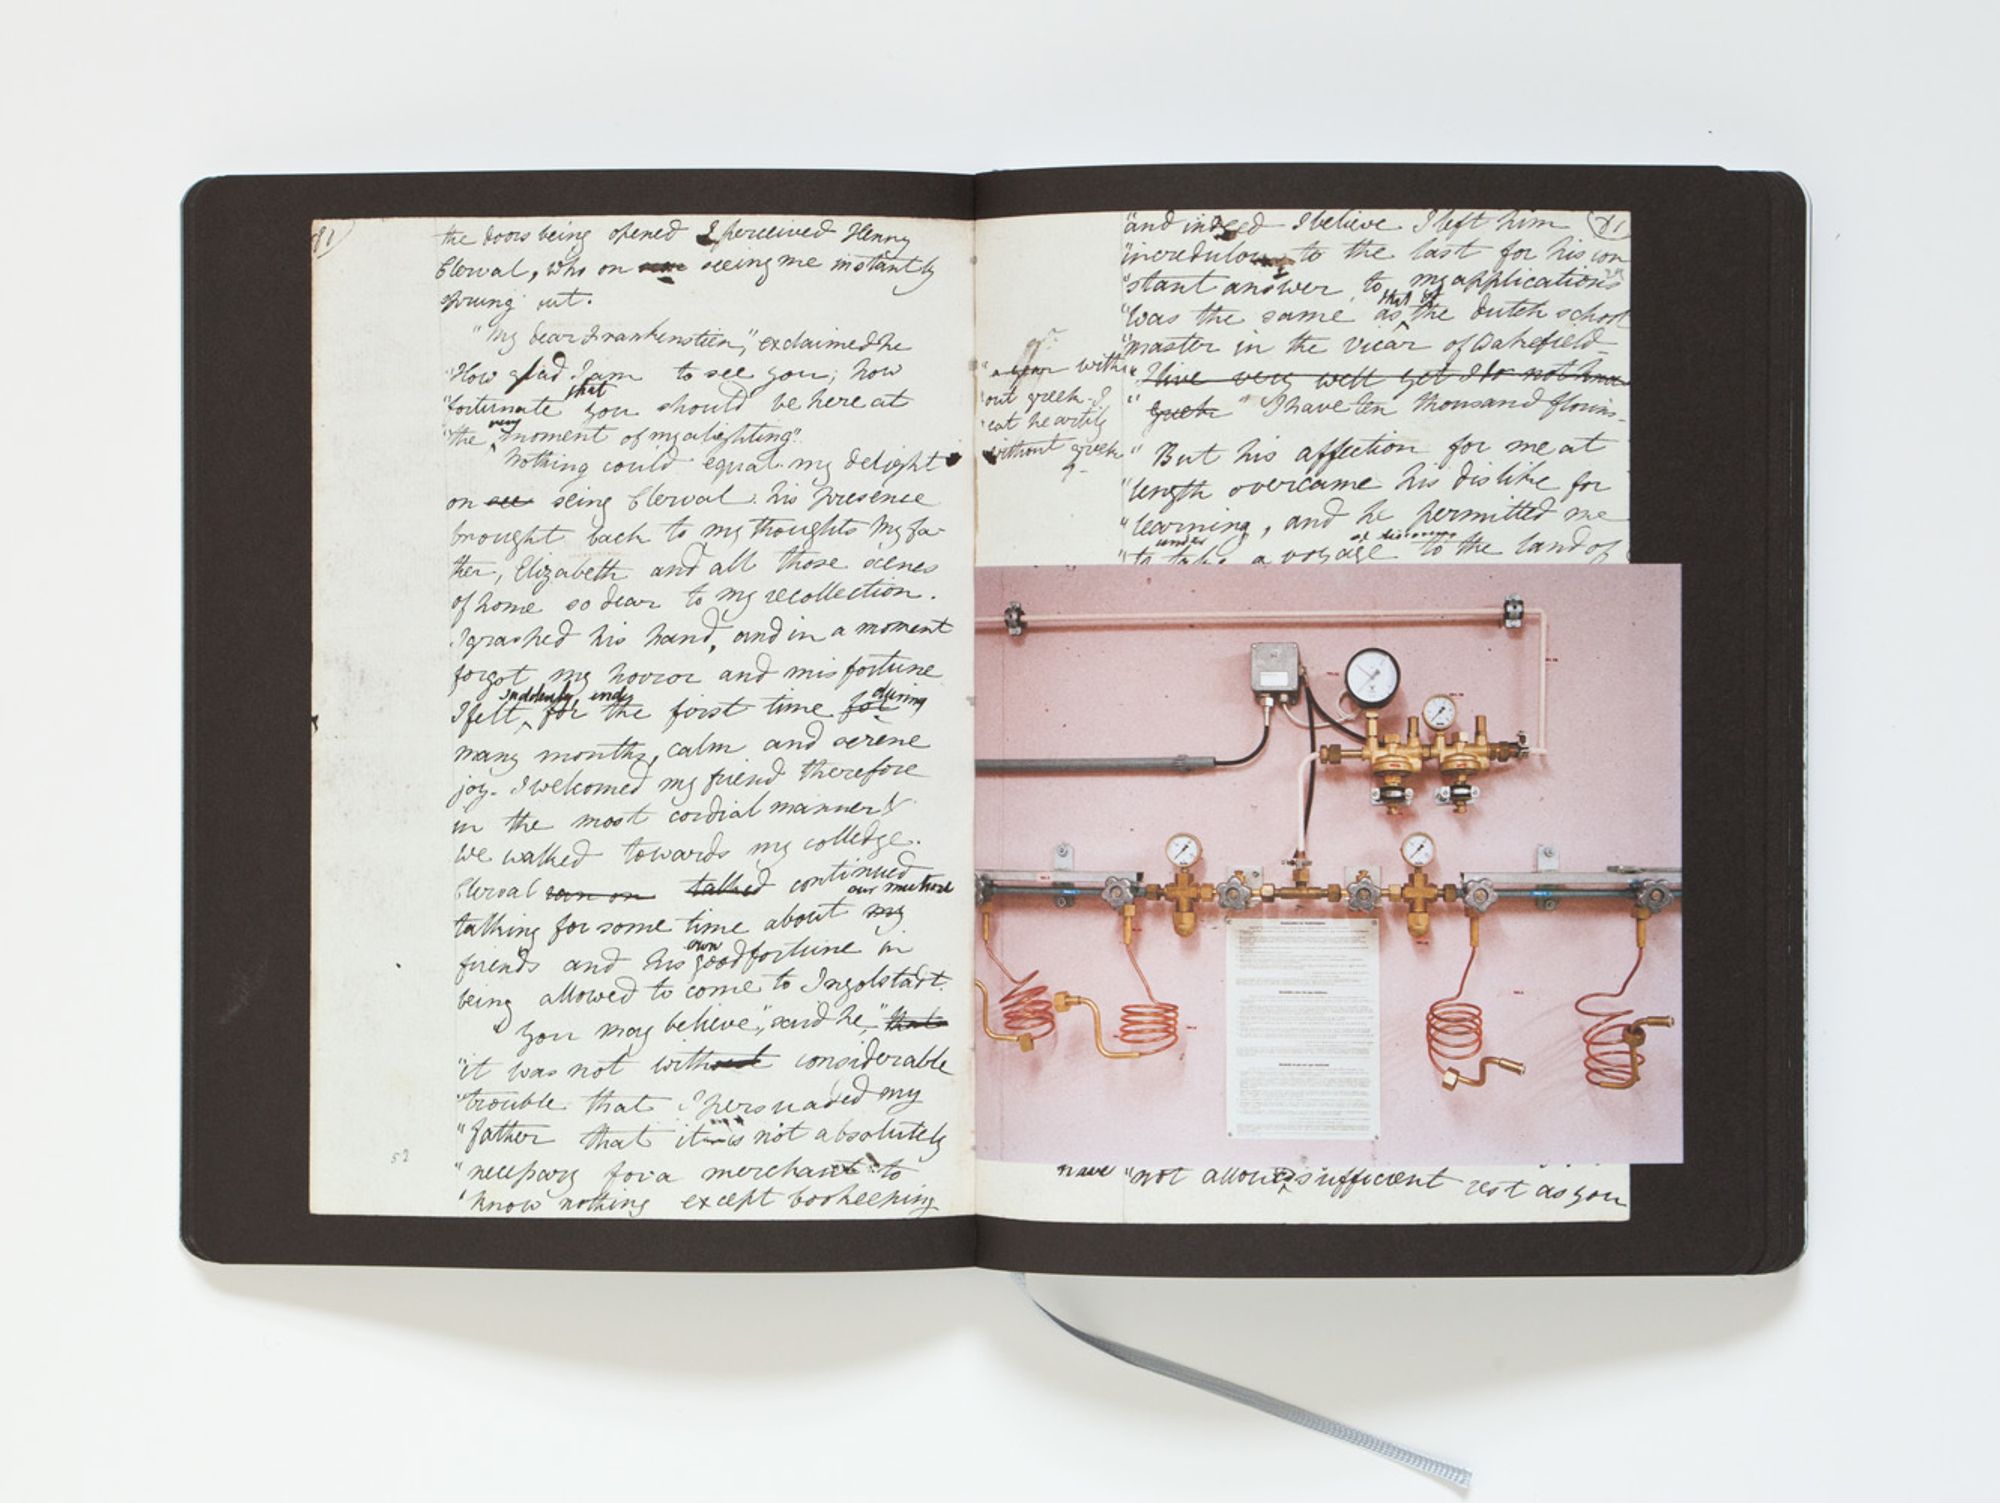 81)
the doors being opened I perceived Henry
Clerval, who on see seeing me instantly
sprung out.
"My dear Frankenstien," exclaimed he
"How glad I am to see you; how
"fortunate that you should be here at
"the very moment of my alighting".
Nothing could equal my delight
on see seing Clerval. his presence
brought back to my thoughts my fa-
ther, Elizabeth and all those scenes
of home so dear to my recollection.
I grasped his hand, and in a moment
forgot my horror and misfortune
suddenly and
I felt, for the first time for during
many months, calm and serene
joy. I welcomed my friend therefore
in the most cordial manner &
we walked towards my colledge.
Clerval ran on talked continued
talking for some time about my our mutual
friends and his own good fortune in
being allowed to come to Ingolstadt.
"You may believe", said he, "that
"it was not without considerable
"trouble that I persuaded my
"father that it is not absolutely
"necessary for a merchant to
"know nothing except bookeeping
52
"and indeed I believe I left him 81
"incredulous to the last for his con
"stant answer to my applications
"was the same as that of the dutch school
"master in the vicar of Wakefield
"I live very well yet I do not know
"Greek "I have ten thousand florins
"a year with
"out greek - I
"eat heartily
"without greek
"But his affection for me at
"length overcame his dislike for
"learning, and he permitted me
under
"to take a voyage to the land of
have "not allowed sufficient rest as you